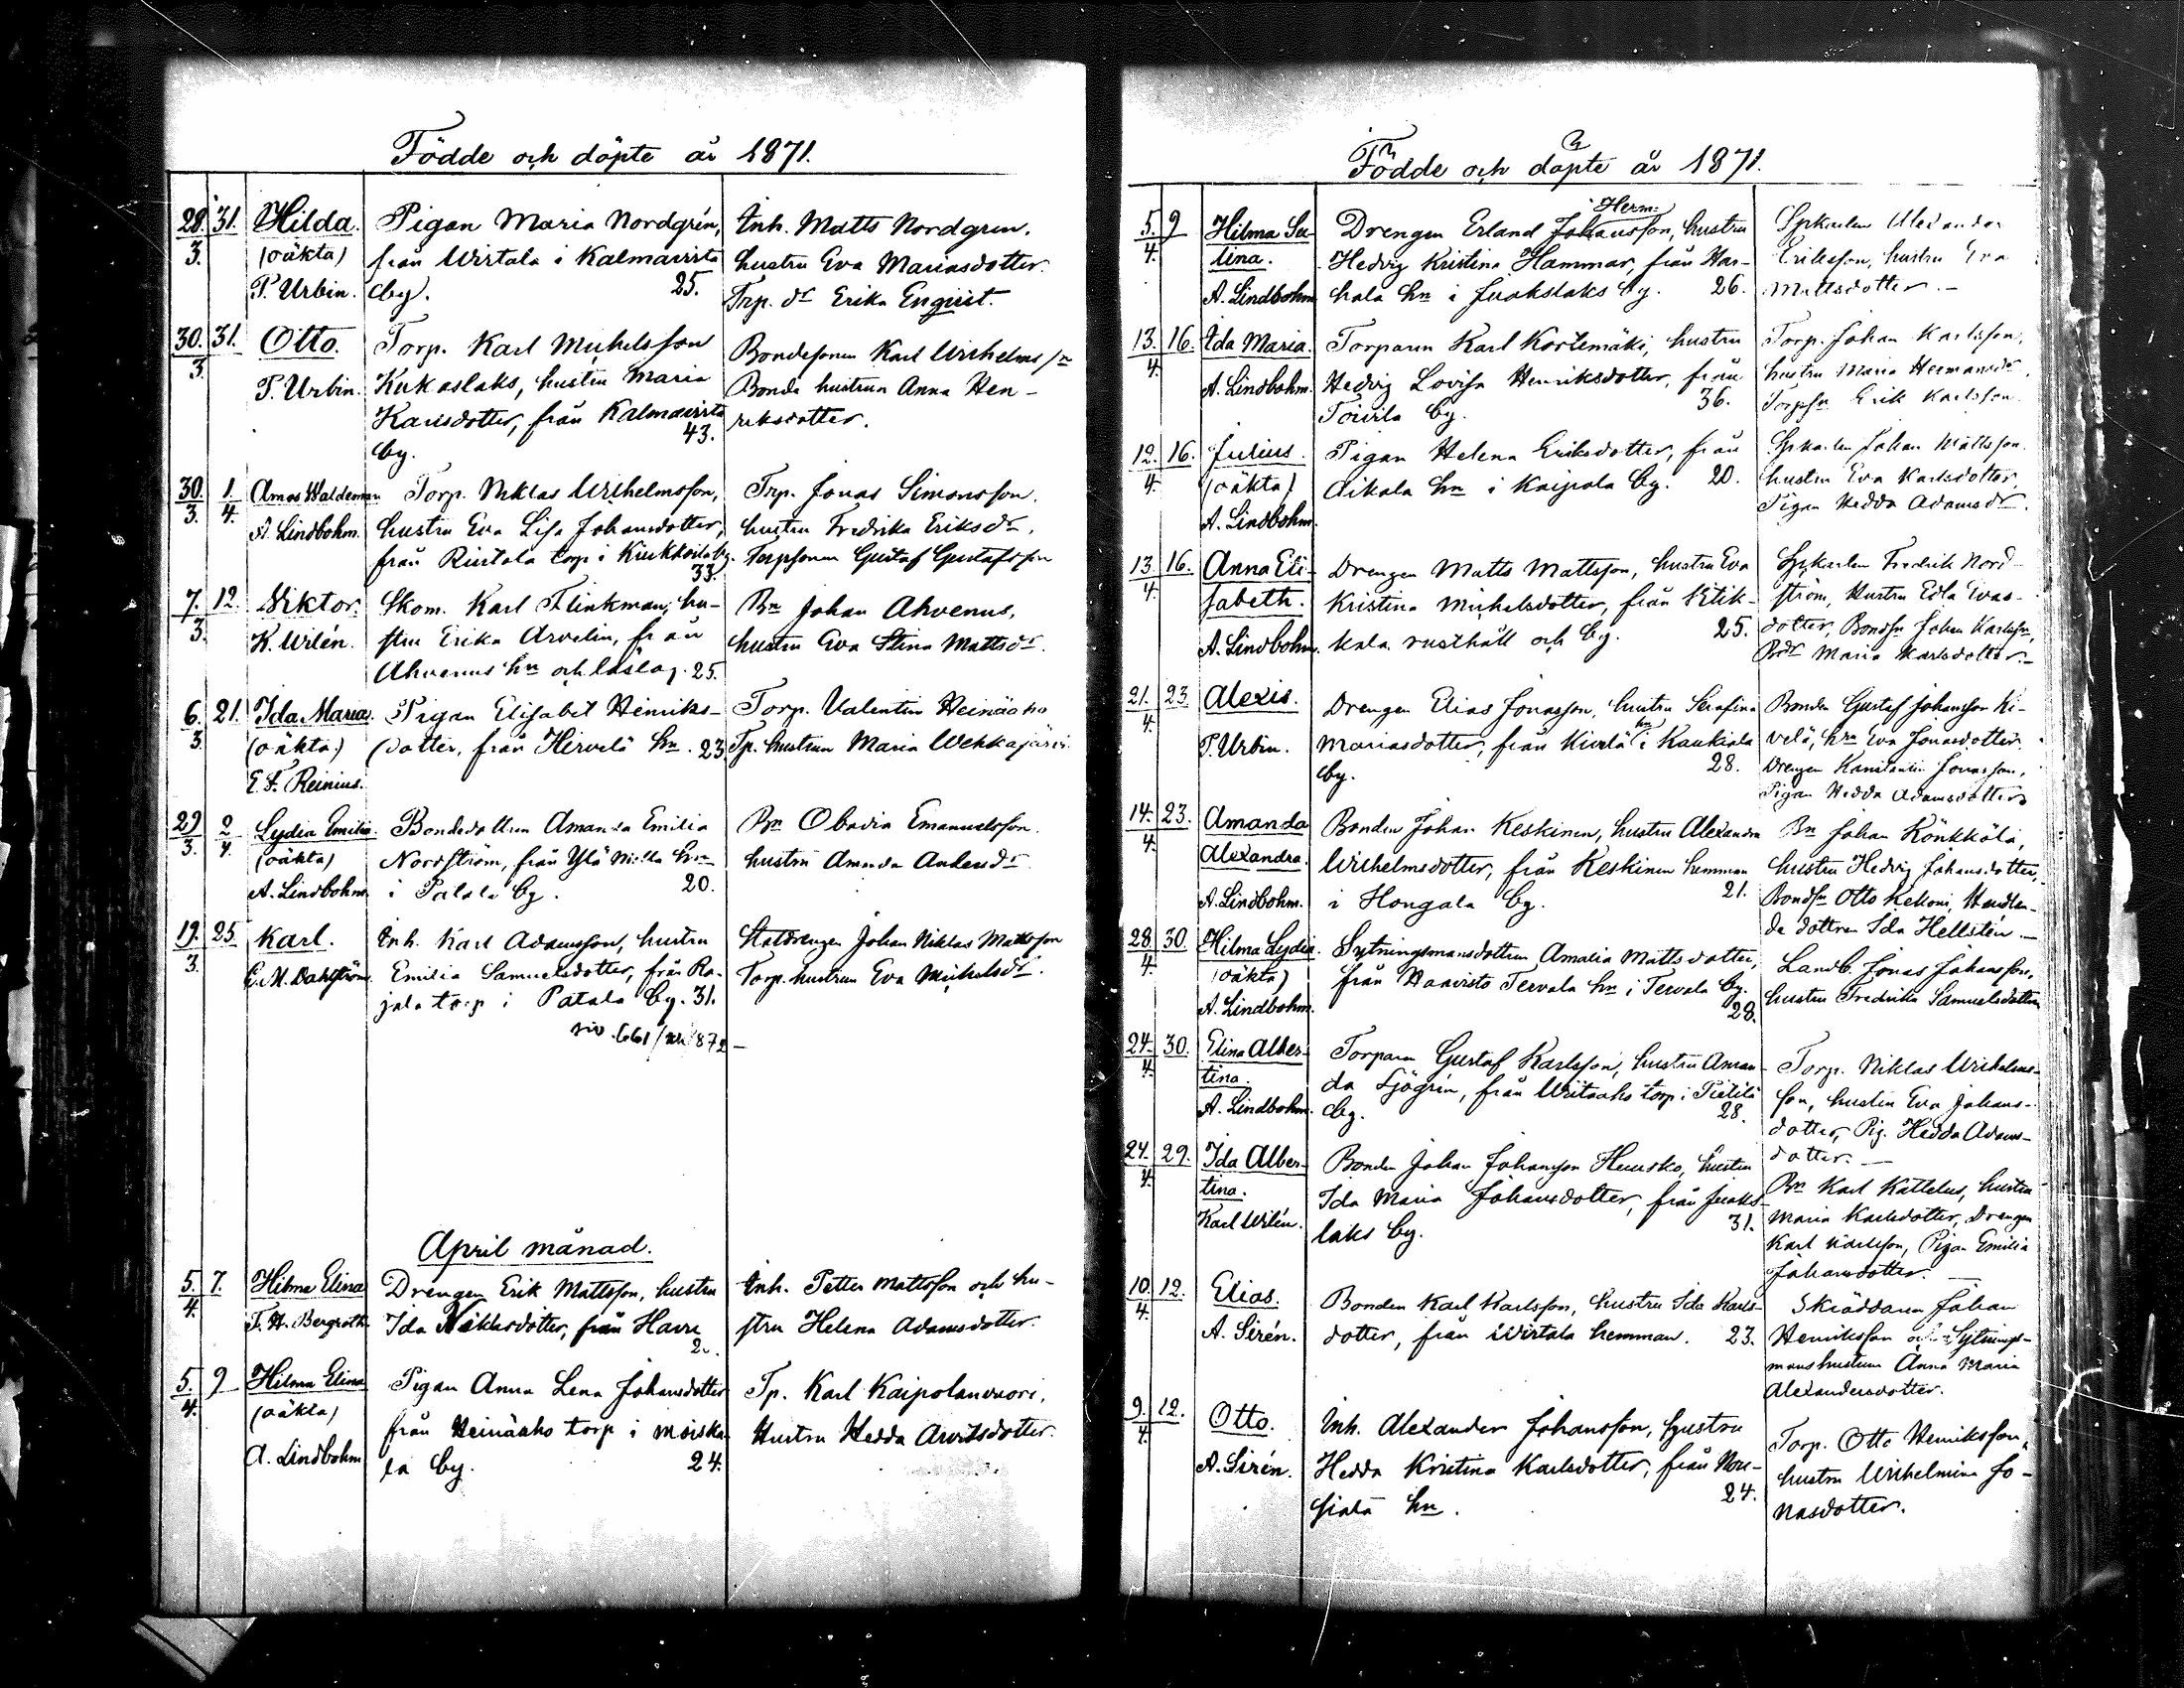 Födde och döpte år 1871.
28. 31. Hilda. Pigan Maria Nordgrén, Inh. Matts Nordgren.
3. (oäkta) från Wirtala i Kalmavirta hustru Eva Mariasdotter.
P. Urbin. by. 25. Trp. dr Erika Enqvist.
30. 31. Otto. Torp. Karl Michelsson Bondesonen Karl Wilhelms sn
3. P. Urbin. Kukaslaks, hustru Maria Bonda hustrun Anna Hen-
Karlsdotter, från Kalmavirta riksdotter.
43.
by.
30. 1. Amos Waldemar Torp. Niklas Wilhelmsson, Trp. Jonas Simonsson.
3. 4. A. Lindbohm. hustru Eva Lisa Johansdotter, hustru Fredrika Eriksdr.
från Rintala torp i by. Torpsonen Gustaf Gustafsson
33.
7. 12. Viktor. Skom. Karl Flinkman, hu- Bn Johan Ahvenus,
3. K. Wilén. stru Erika Arvelin, från hustru Eva Stina Mattsdr.
Ahvenus hn och 25.
6. 21. Ida Maria. Pigan Elisabet Henriks- Torp. Valentin Heinäaho
3. (oäkta) dotter, från Hirvelä hn. 23. Tp. hustrun Maria Wehkajärvi.
E. F. Reinius.
29 2 Lydia Emilia. Bondedottren Amanda Emilia Bn Obadia Emanuelsson.
3. 4. (oäkta) Nordström, från Ylä hn hustru Amanda Andersdr
A. Lindbohm i Patala by. 20.
19. 25 Karl. Inh. Karl Adamsson, hustru Statdrengen Johan Niklas Mattsson
3. E. M. Dahlström Emilia Samuelsdotter, från Ra- Torp. hustrun Eva Michelsdr.
jala torp i Patala by. 31.
661/ 872 -
April månad.
5. 7. Hilma Elina Drengen Erik Mattsson, hustru Inh. Petter Mattsson och hu-
4. F. H. Bergroth Ida Niklasdotter, från stru Helena Adamsdotter.
5. 9 Hilma Elina Pigan Anna Lena Johansdotter Tp. Karl Kaipolanvuori,
4. (oäkta) från Heinäaho torp i Moiska- Hustru Hedda Arvidsdotter.
A. Lindbohm la by. 24.
Födde och döpte år 1871.
Herm:
5. 9 Hilma Se- Drengen Erland Johansson, hustru Spkarlen Alexander
4. lina. Hedvig Kristina Hammar, från Har- Eriksson, hustru Eva
A. Lindbohm hala hn i Juokslaks by. 26. Mattsdotter. -
13. 16. Ida Maria. Torparen Karl Kortemäki, hustru Torp. Johan Karlsson,
4. A. Lindbohm. Hedvig Lovisa Henriksdotter, från hustru Maria Hermansdr,
Toivila by. 36. Torpsn Erik Karlsson.
12. 16. Julius. Pigan Helena Eriksdotter, från Spkarlen Johan Mattsson.
4. (oäkta) Aikala hn i Kaipola by. 20. hustru Eva Karlsdotter,
A. Lindbohm. Pigan Hedda Adamsdr.
13. 16. Anna Eli- Drengen Matts Mattsson, hustru Eva Spkarlen Fredrik Nord-
4. sabeth. Kristina Michelsdotter, från ström, Hustru Edla Evas-
A. Lindbohm. kala rusthåll och by. 25. dotter, Bondsn Johan Karlsson,
Bdr Maria Karlsdotter. -
21. 23. Alexis. Drengen Elias Jonasson, hustru Serafina Bonden Gustaf Johansson Ki-
4. P. Urbin. Mariasdotter, från Kivelä hn i Kaukiala velä, hru Eva Jonasdotter,
by. 28. Drengen Konstantin Jonasson,
Pigan Hedda Adamsdotter
14. 23. Amanda Bonden Johan Keskinen, hustru Alexandra Bn Johan Könkkölä,
4. Alexandra. Wilhelmsdotter, från Keskinen hemman hustru Hedvig Johansdotter,
A. Lindbohm. i Hongala by. 21. Bondsn Otto Kekoni,
de dottren Ida Hellstén. -
28. 30. Hilma Lydia. Sytningsmansdottren Amalia Mattsdotter, Landb. Jonas Johansson,
4. (oäkta) från Haavisto Tervala hn i Tervala by. hustru Fredrika Samuelsdotter
A. Lindbohm. 28.
24. 30. Elina Alber- Torparen Gustaf Karlsson, hustru Aman- Torp. Niklas Wilhelms-
4. tina. da Sjögrén, från torp i Pietilä son, hustru Eva Johans-
A. Lindbohm. by. 28. dotter, Pig. Hedda Adams-
dotter. -
24. 29. Ida Alber- Bonden Johan Johansson Huusko, hustru Bn Karl Kättelus, hustru
4. tina. Ida Maria Johansdotter, från Juoks- Maria Karlsdotter, Drengen
Karl Wilén. laks by. 31. Karl Karlsson, Pigan Emilia
Johansdotter. -
10. 12. Elias. Bonden Karl Karlsson, hustru Ida Karls- Skräddaren Johan
4. A. Sirén. dotter, från Wirtala hemman. 23. Henriksson och Sytnings-
manshustrun Anna Maria
Alexandersdotter.
9. 12. Otto. Inh. Alexander Johansson, hustru Torp. Otto Henriksson,
4. A. Sirén. Hedda Kristina Karlsdotter, från Nou- hustru Wilhelmina Jo-
siala hn. 24. nasdotter.